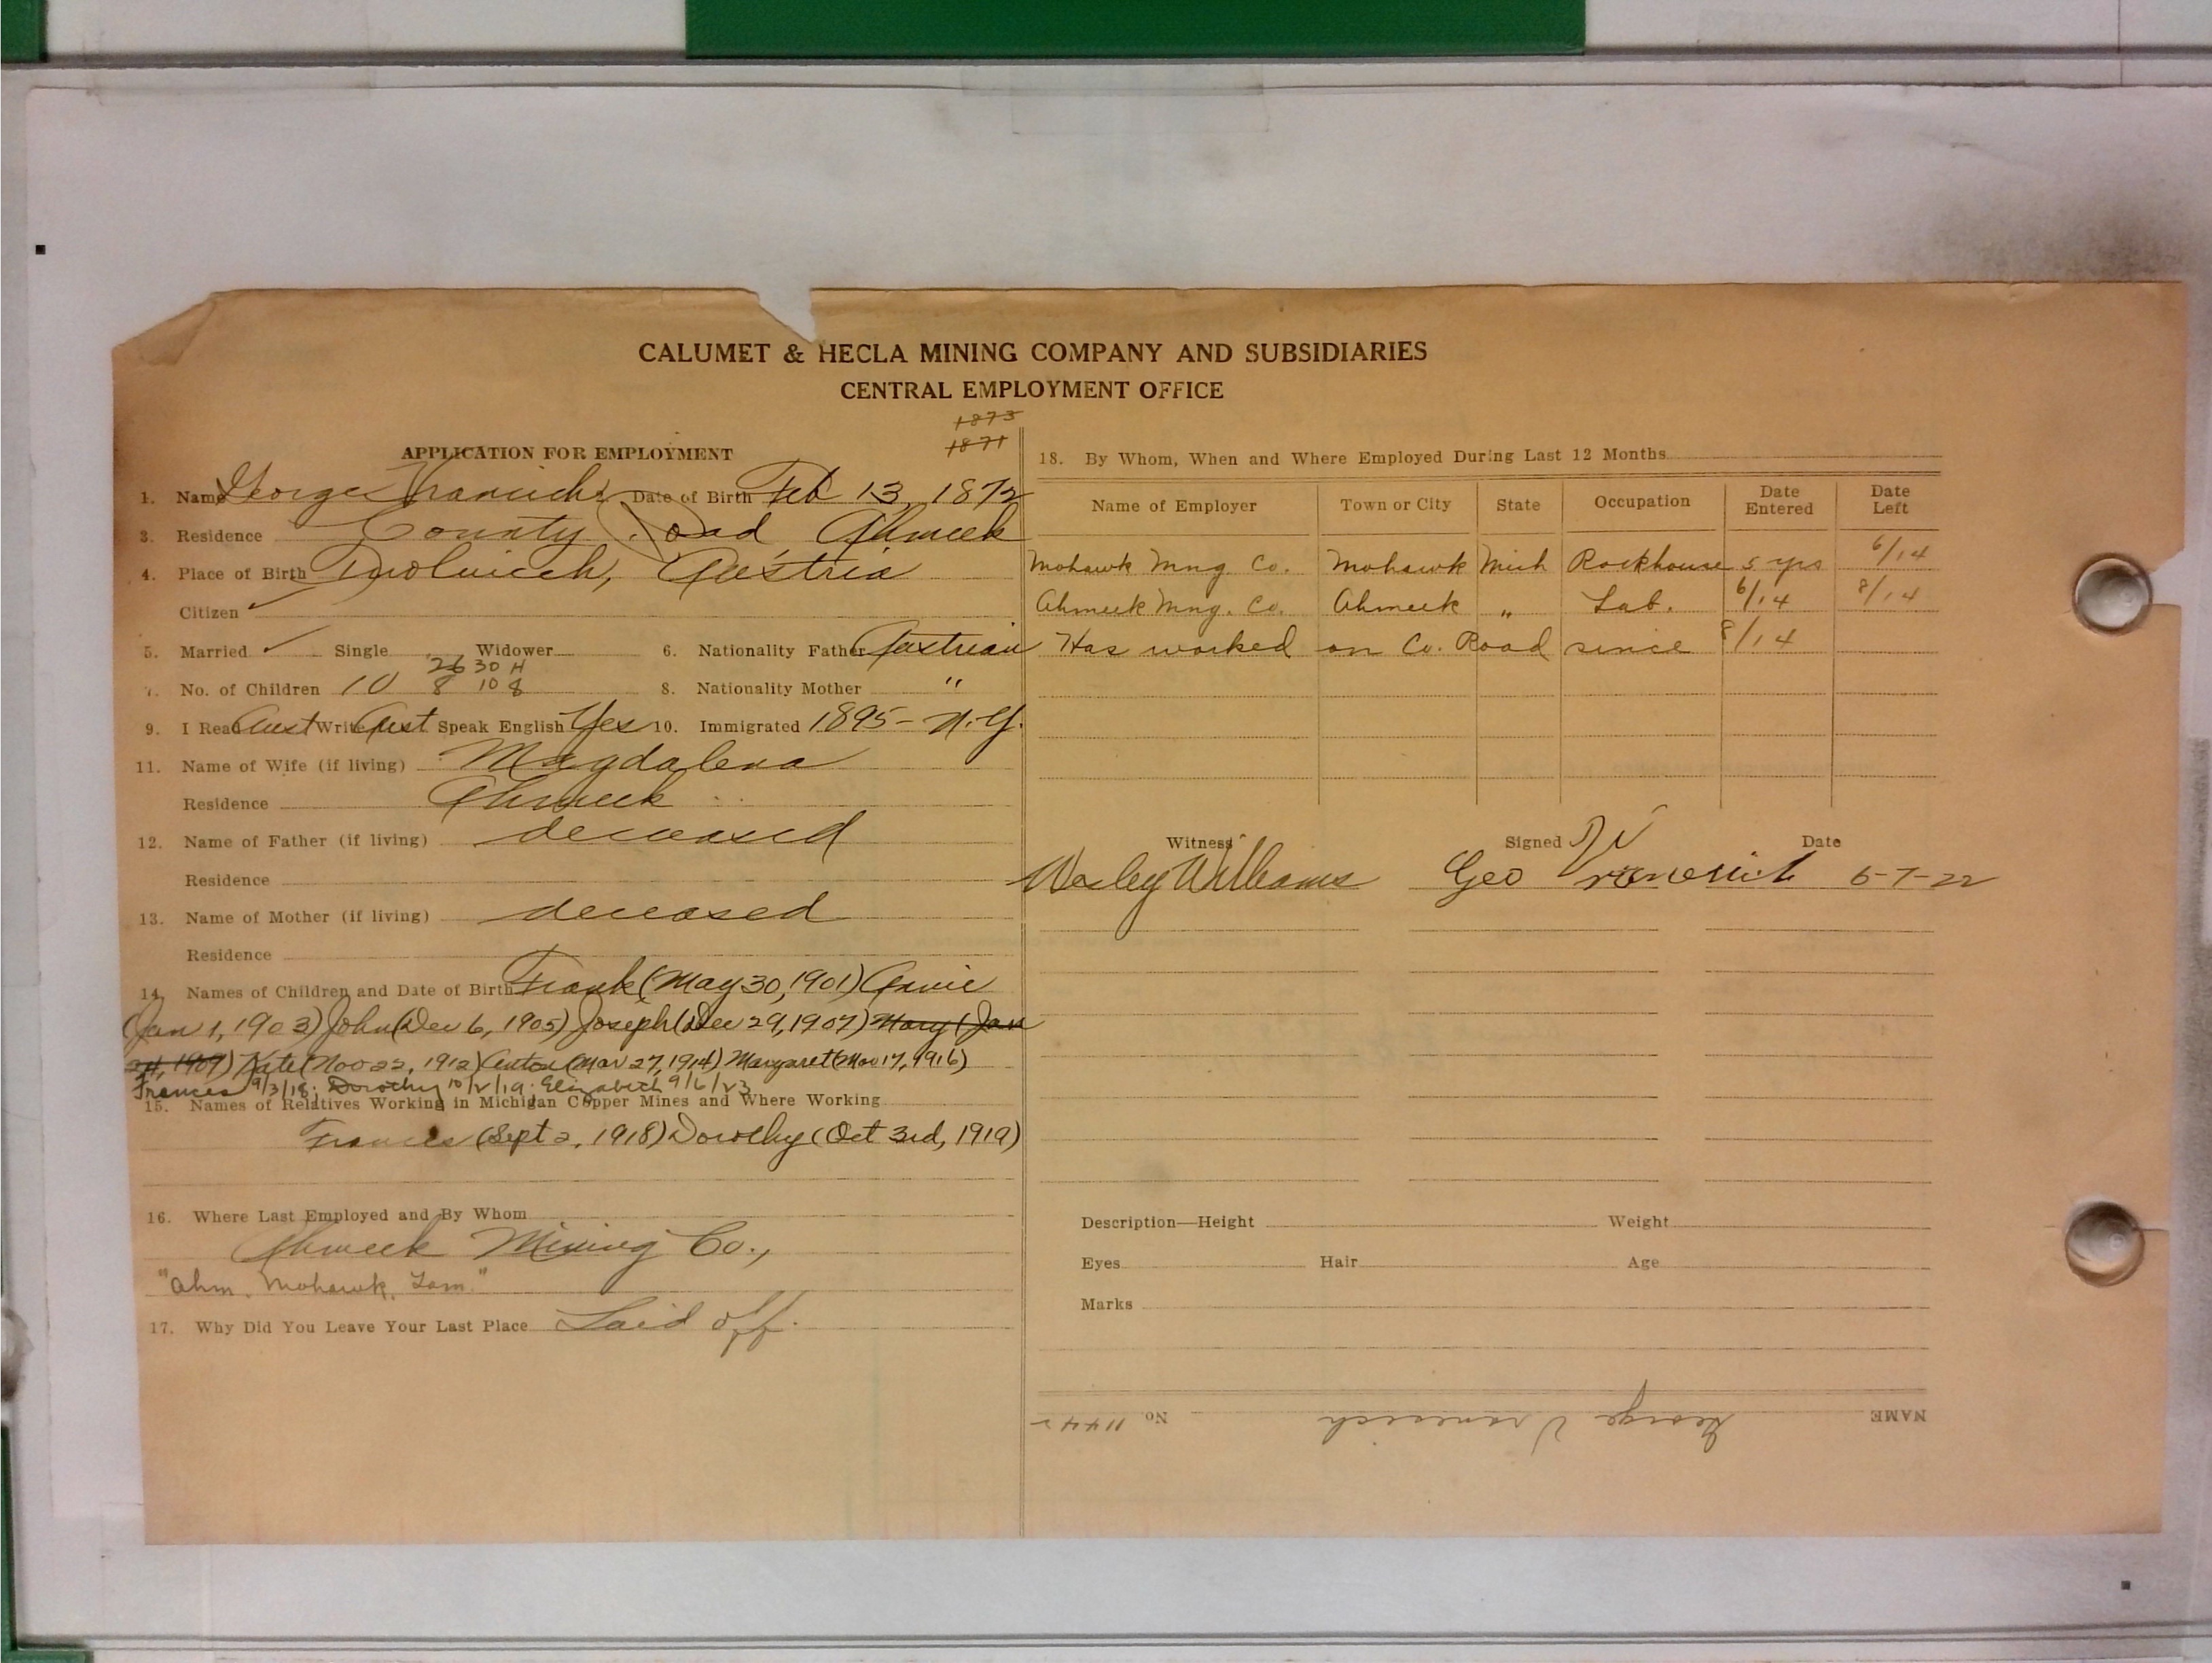 CALUMET & HECLA MINING COMPANY AND SUBSIDIARIES
CENTRAL EMPLOYMENT OFFICE
1873
1871
APPLICATION FOR EMPLOYMENT
1. Name George Vranesich Date of Birth Feb 13, 1872
3. Residence County Road, Ahmeek
4. Place of Birth Austria
Citizen ✓
5. Married ✓ Single Widower 6. Nationality Father Austrian
26 30 H
7. No. of Children 10 8 10 8 8. Nationality Mother "
9. I Read Aust Write Aust Speak English Yes 10. Immigrated 1895 - N.Y.
11. Name of Wife (if living) Magdalena
Residence Ahmeek
12. Name of Father (if living) deceased
Residence
13. Name of Mother (if living) deceased
Residence
14. Names of Children and Date of Birth Frank (May 30, 1901) Annie
(Jan 1, 1903) John (Dec 6, 1905) Joseph (Dec 29, 1907) Mary (Jan
24, 1909) Kate (Nov 22, 1912) Anton (Mar 27, 1914) Margaret (Nov 17, 1916)
Frances 9/3/18; Dorothy 10/2/19; Elizabeth 9/6/23
15. Names of Relatives Working in Michigan Copper Mines and Where Working
Frances (Sept 2, 1918) Dorothy (Oct 3rd, 1919)
16. Where Last Employed and By Whom
Ahmeek Mining Co.,
"Ahm. Mohawk. Tam."
17. Why Did You Leave Your Last Place Laid off.
18. By Whom, When and Where Employed During Last 12 Months
Name of Employer Town or City State Occupation Date Entered Date Left
Mohawk Mng Co. Mohawk Mich Rockhouse 5 yrs 6/14
Ahmeek Mng. Co. Ahmeek " Lab. 6/14 8/14
Has worked on Co. Road since 8/14
Witness Signed Date
Wesley Williams Geo Vranesich 6-7-22
Description—Height Weight
Eyes Hair Age
Marks
NAME George Vranesich No. 11442